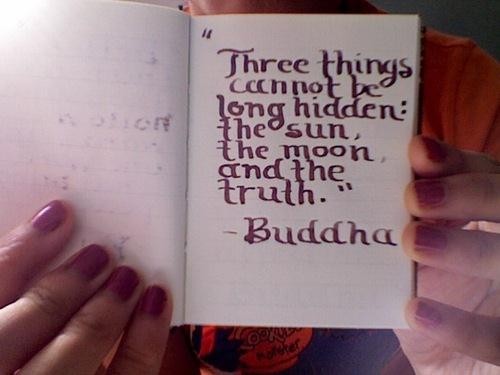 "Three things
cannot be
long hidden:
the sun,
the moon,
and the
truth."
- Buddha
Cookie
monster